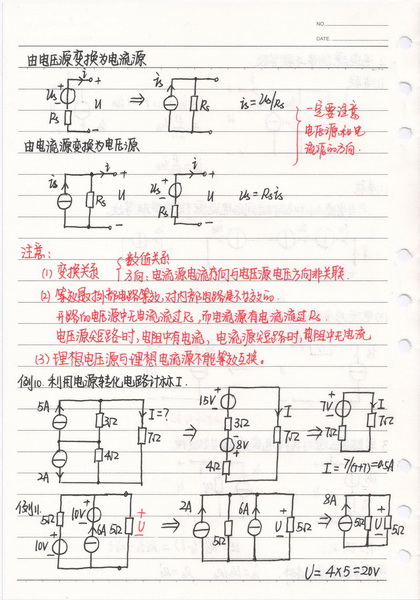 NO.
DATE
由电压源变换为电流源
i + is
Us U ⇒ Rs is = Us/Rs
Rs -
一定要注意
电压源和电
流源的方向.
由电流源变换为电压源
i + i +
is Rs U ⇒ Us U Us = Rs is
- Rs -
注意:
(1) 变换关系 { 数值关系
方向: 电流源电流方向与电压源电压方向非关联.
(2) 等效是指对外部电路等效, 对内部电路是不等效的.
开路的电压源中无电流流过Rs, 而电流源有电流流过Rs
电压源短路时, 电阻中有电流, 电流源短路时, 其电阻中无电流
(3) 理想电压源与理想电流源不能等效互换.
例10. 利用电源转化电路计算I.
5A 3Ω I=? 7Ω 2A 4Ω
⇒ 15V 3Ω 8V 4Ω I 7Ω
⇒ 7V 7Ω I 7Ω
I = 7/(7+7) = 0.5A
例11.
5Ω 10V 10V 6A 5Ω U
⇒ 2A 5Ω 6A 5Ω U
⇒ 8A 5Ω U 5Ω
U = 4×5 = 20V